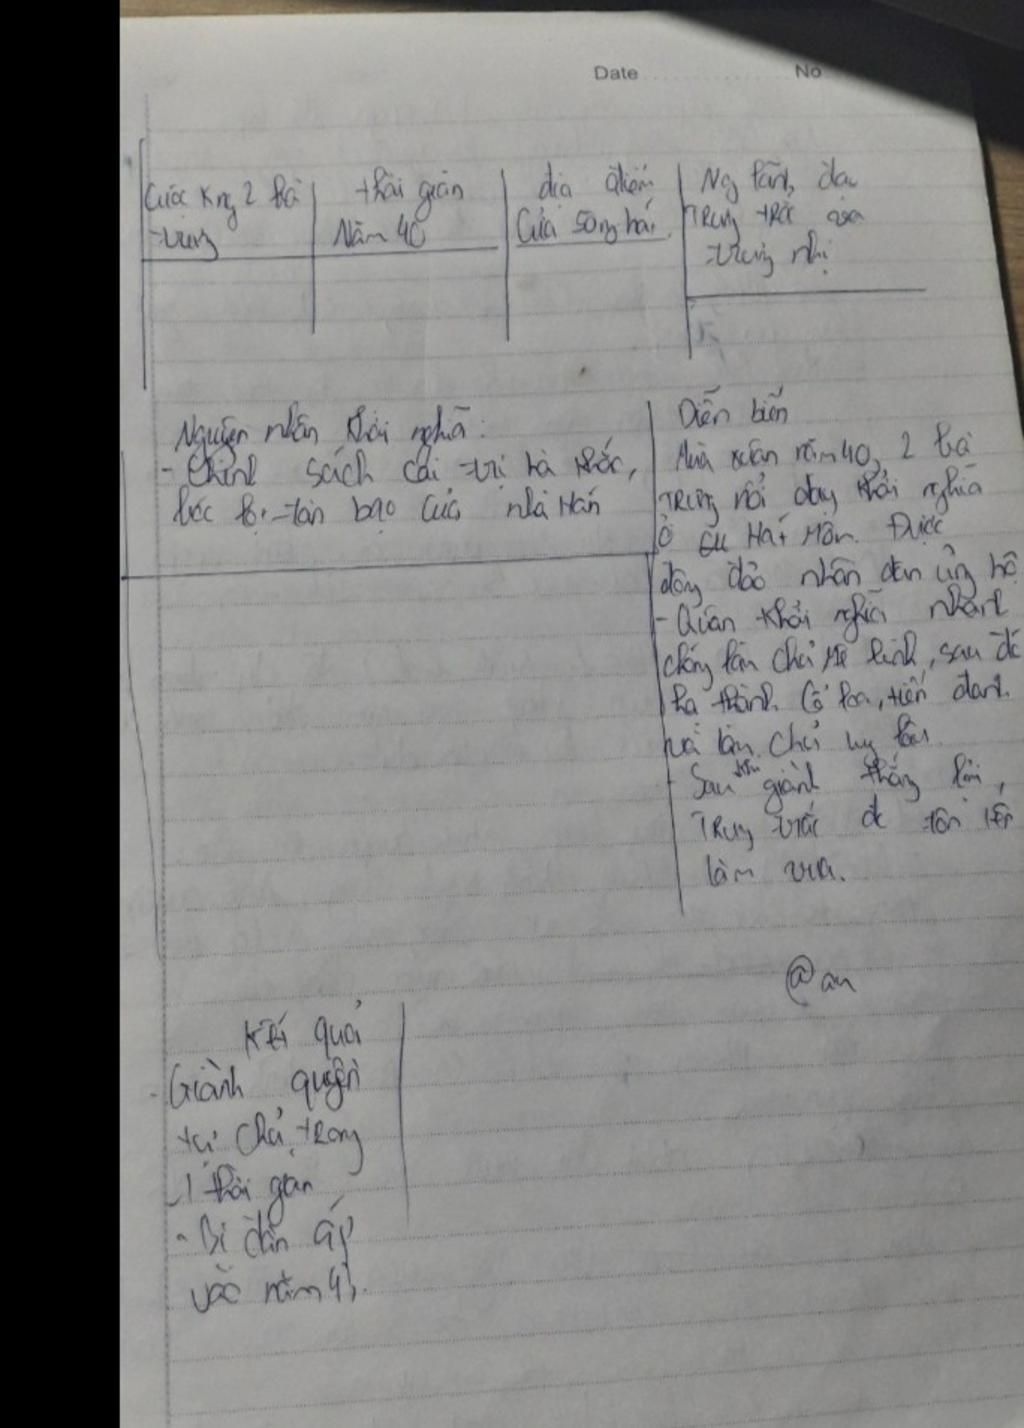 Date No
Cuộc Kng 2 bà
trưng
thời gian
Năm 40
địa điểm
Cửa sông hát
Ng lãnh đạo
Trưng trắc và
trưng nhị
Nguyên nhân khởi nghĩa:
- Chính sách cai trị hà khắc,
bóc lột tàn bạo của nhà Hán
Diễn biến
Mùa xuân năm 40, 2 bà
Trưng nổi dậy khởi nghĩa
ở Hát Môn. Được
đông đảo nhân dân ủng hộ
- Quân khởi nghĩa nhanh
chóng làm chủ Mê linh, sau đó
hạ thành Cổ loa, tiến đánh
và làm chủ luy lâu.
- Sau khi giành thắng lợi,
Trưng trắc đc tôn lên
làm vua.
@an
Kết quả
- Giành quyền
tự chủ trong
1 thời gian
- Bị đàn áp
vào năm 43.